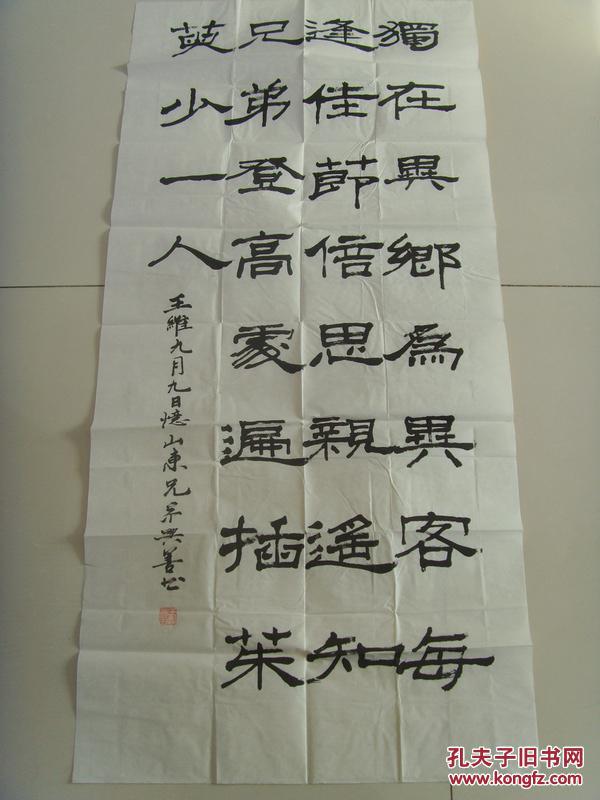 獨在異鄉爲異客每
逢佳節倍思親遙知
兄弟登高處遍插茱
萸少一人
王維九月九日憶山東兄弟興善书
孔夫子旧书网
www.kongfz.com